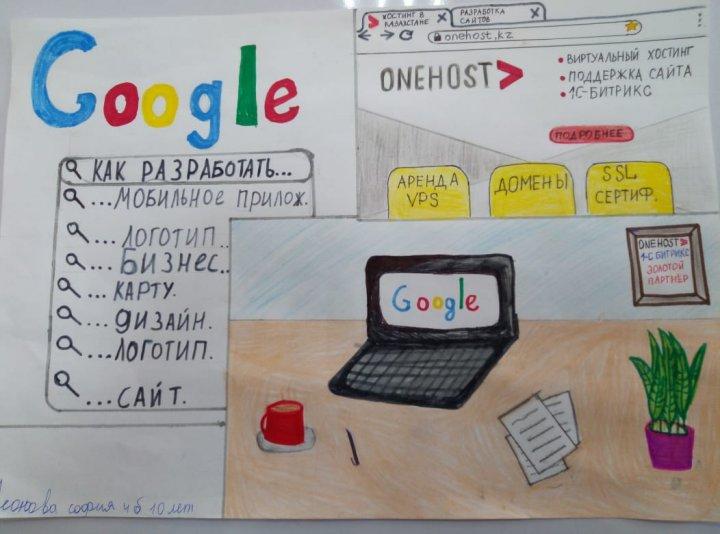 Google
КАК РАЗРАБОТАТЬ...
...МОБИЛЬНОЕ ПРИЛОЖ.
...ЛОГОТИП..
...БИЗНЕС..
...КАРТУ.
...ДИЗАЙН.
...ЛОГОТИП.
...САЙТ.
ХОСТИНГ В
КАЗАХСТАНЕ X
РАЗРАБОТКА
САЙТОВ X
onehost.kz
ONEHOST
• ВИРТУАЛЬНЫЙ ХОСТИНГ
• ПОДДЕРЖКА САЙТА
• 1С-БИТРИКС
ПОДРОБНЕЕ
АРЕНДА
VPS
ДОМЕНЫ
SSL
СЕРТИФ.
Google
ONEHOST
1-С БИТРИКС
ЗОЛОТОЙ
ПАРТНЁР
софия 4 б 10 лет